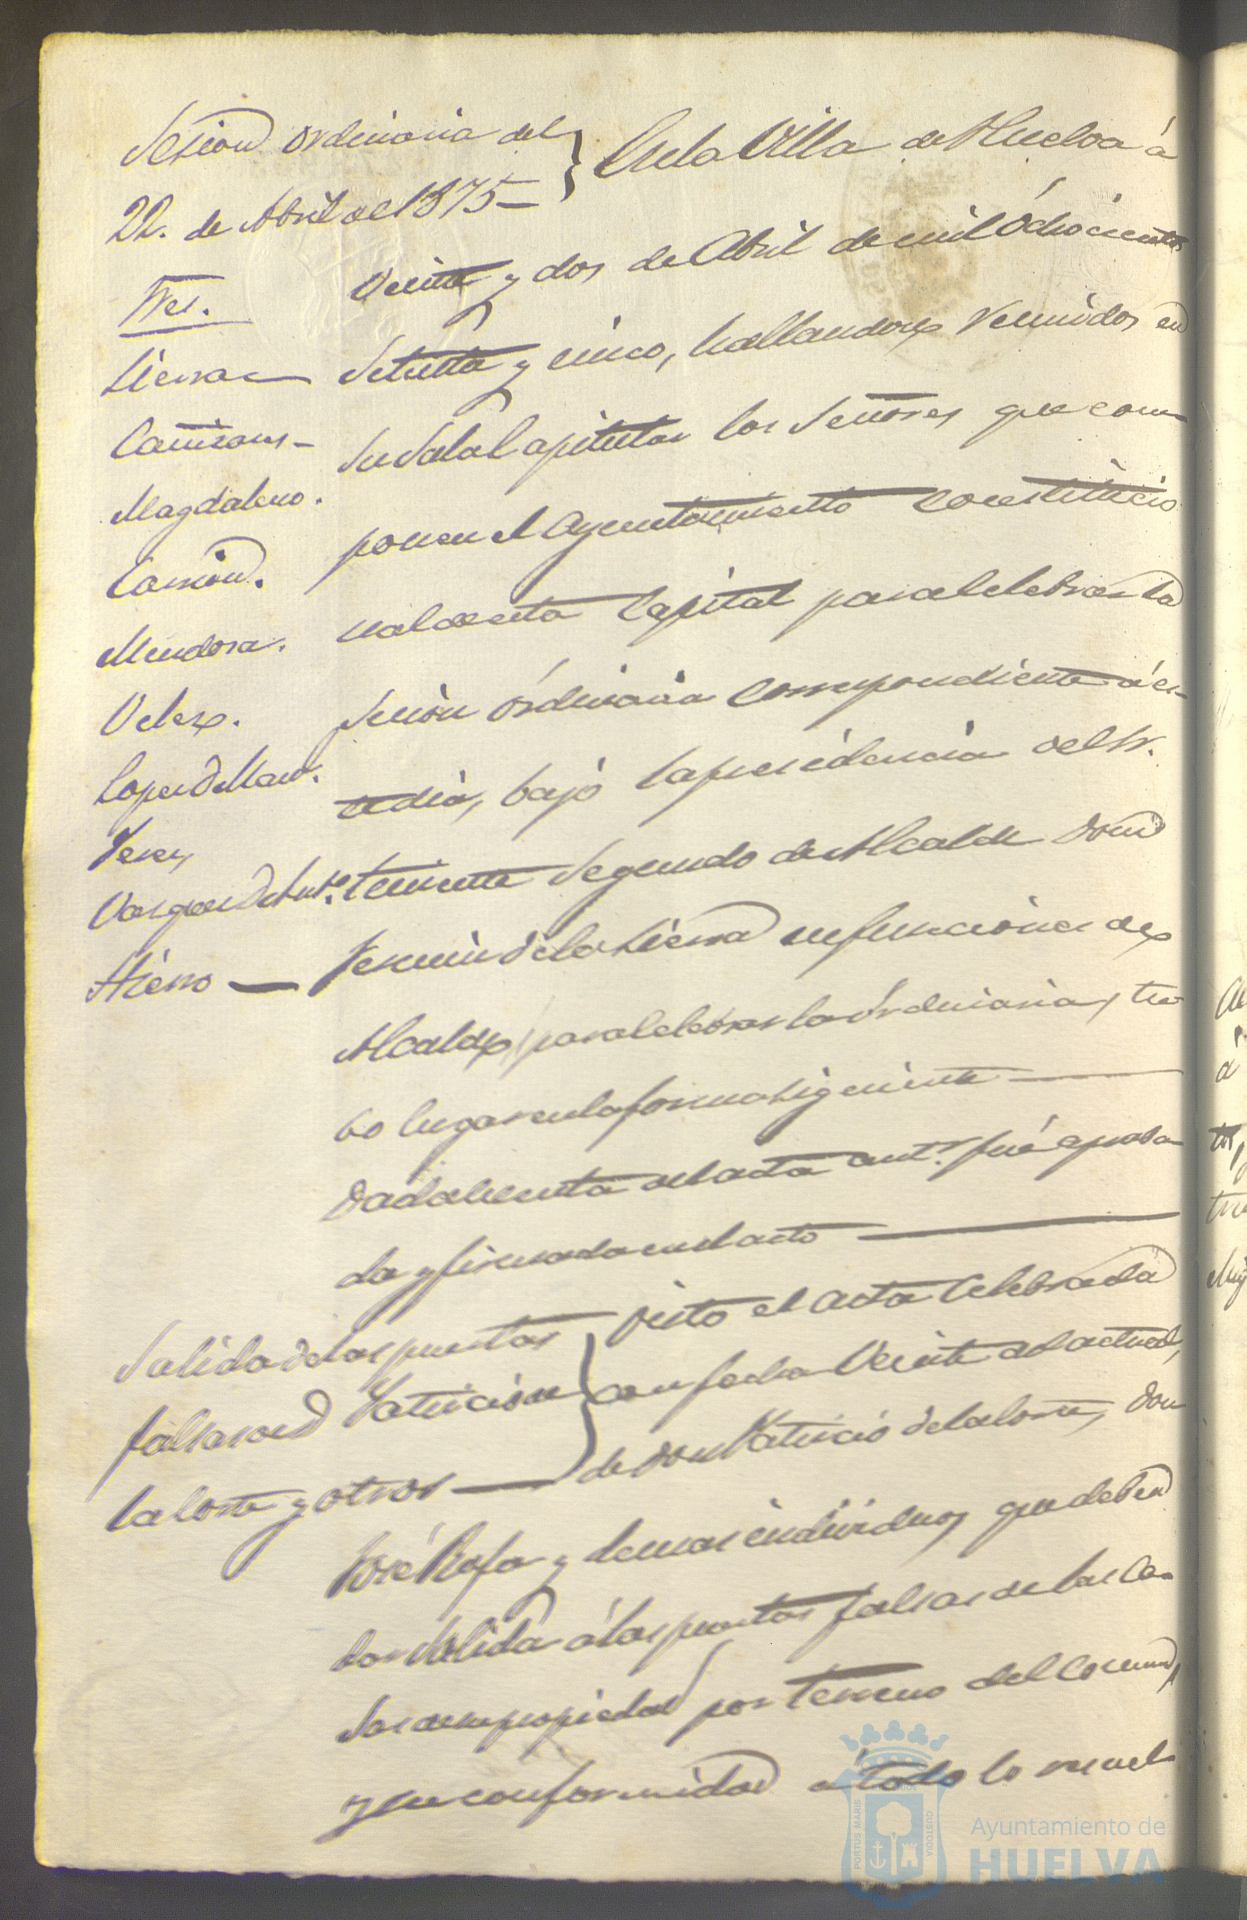 Sesion ordinaria del
22. de Abril de 1875 —
Sres.
Sierra —
Cañizares —
Magdaleno.
Carrion.
Mendoza.
Velez.
Lopez de Man.
Perez
Vazquez de Anto.
Hierro —
En la Villa de Huelva á
Veinte y dos de Abril de mil ochocientos
Setenta y cinco, hallandose reunidos en
su Sala Capitular los Señores que com-
ponen el Ayuntamiento Constitucio-
nal de esta Capital para celebrar la
sesion órdinaria correspondiente á es-
te dia, bajo la presidencia del Sr.
teniente Segundo de Alcalde Don
Fermin de la Sierra en funciones de
Alcalde, para celebrar la órdinaria, tu-
bo lugar en la forma siguiente —
Dada cuenta del acta antr. fué aproba-
da y firmada en el acto —
Salida de las puertas
falsas de D. Patricio de
la Corte y otros —
Visto el acta Celebrada
con fecha Veinte del actual,
de Don Patricio de la Corte, Don
José Rofa y demas individuos, que deben
dar salida á las puertas falsas de las ca-
sas de su propiedad por terreno del Comun,
y en conformidad á todo lo resuel-
Ayuntamiento de
HUELVA
PORTUS MARIS
CUSTODIA